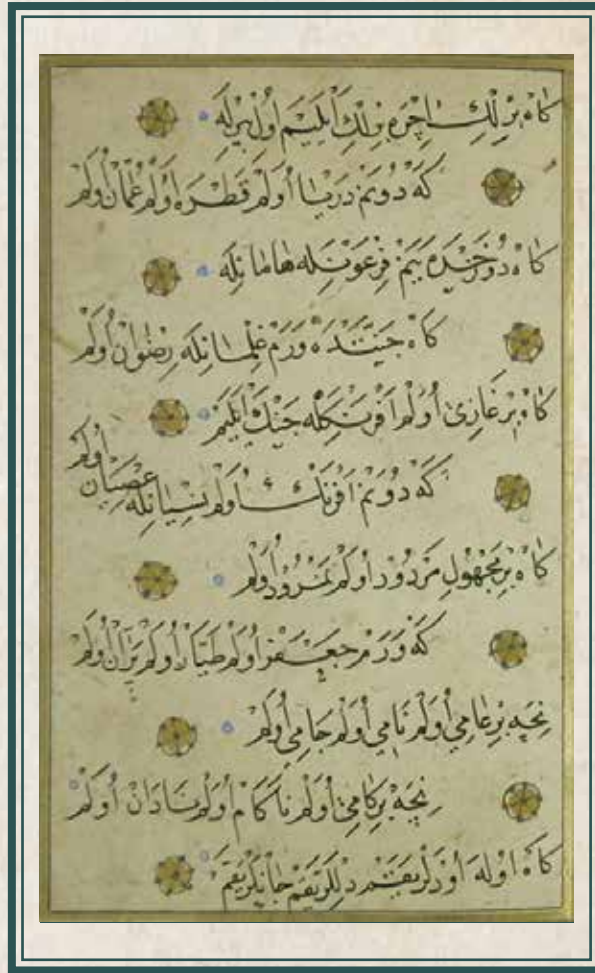 كاه بر لك ايچره برلك ايليم اول بيرله
كه دونم دريا اولم قطره اولم عمان اولم
كاه دوزخده يبم فرعونله هامانله
كاه جنتده ورم غلمانله رضوان اولم
كاه بر غازي اولم افرنكله جنك ايليم
كه دونم افرنك اولم نسيانله عصيان اولم
كاه بر مجهول مردود اولم نمرود اولم
كه ورم جعفر اولم طيار اولم پران اولم
نجه بر عامي اولم نامي اولم جامي اولم
نجه بر كامي اولم ناكام اولم نادان اولم
كاه اوله اودلر يقم دللر يقم جانلر يقم